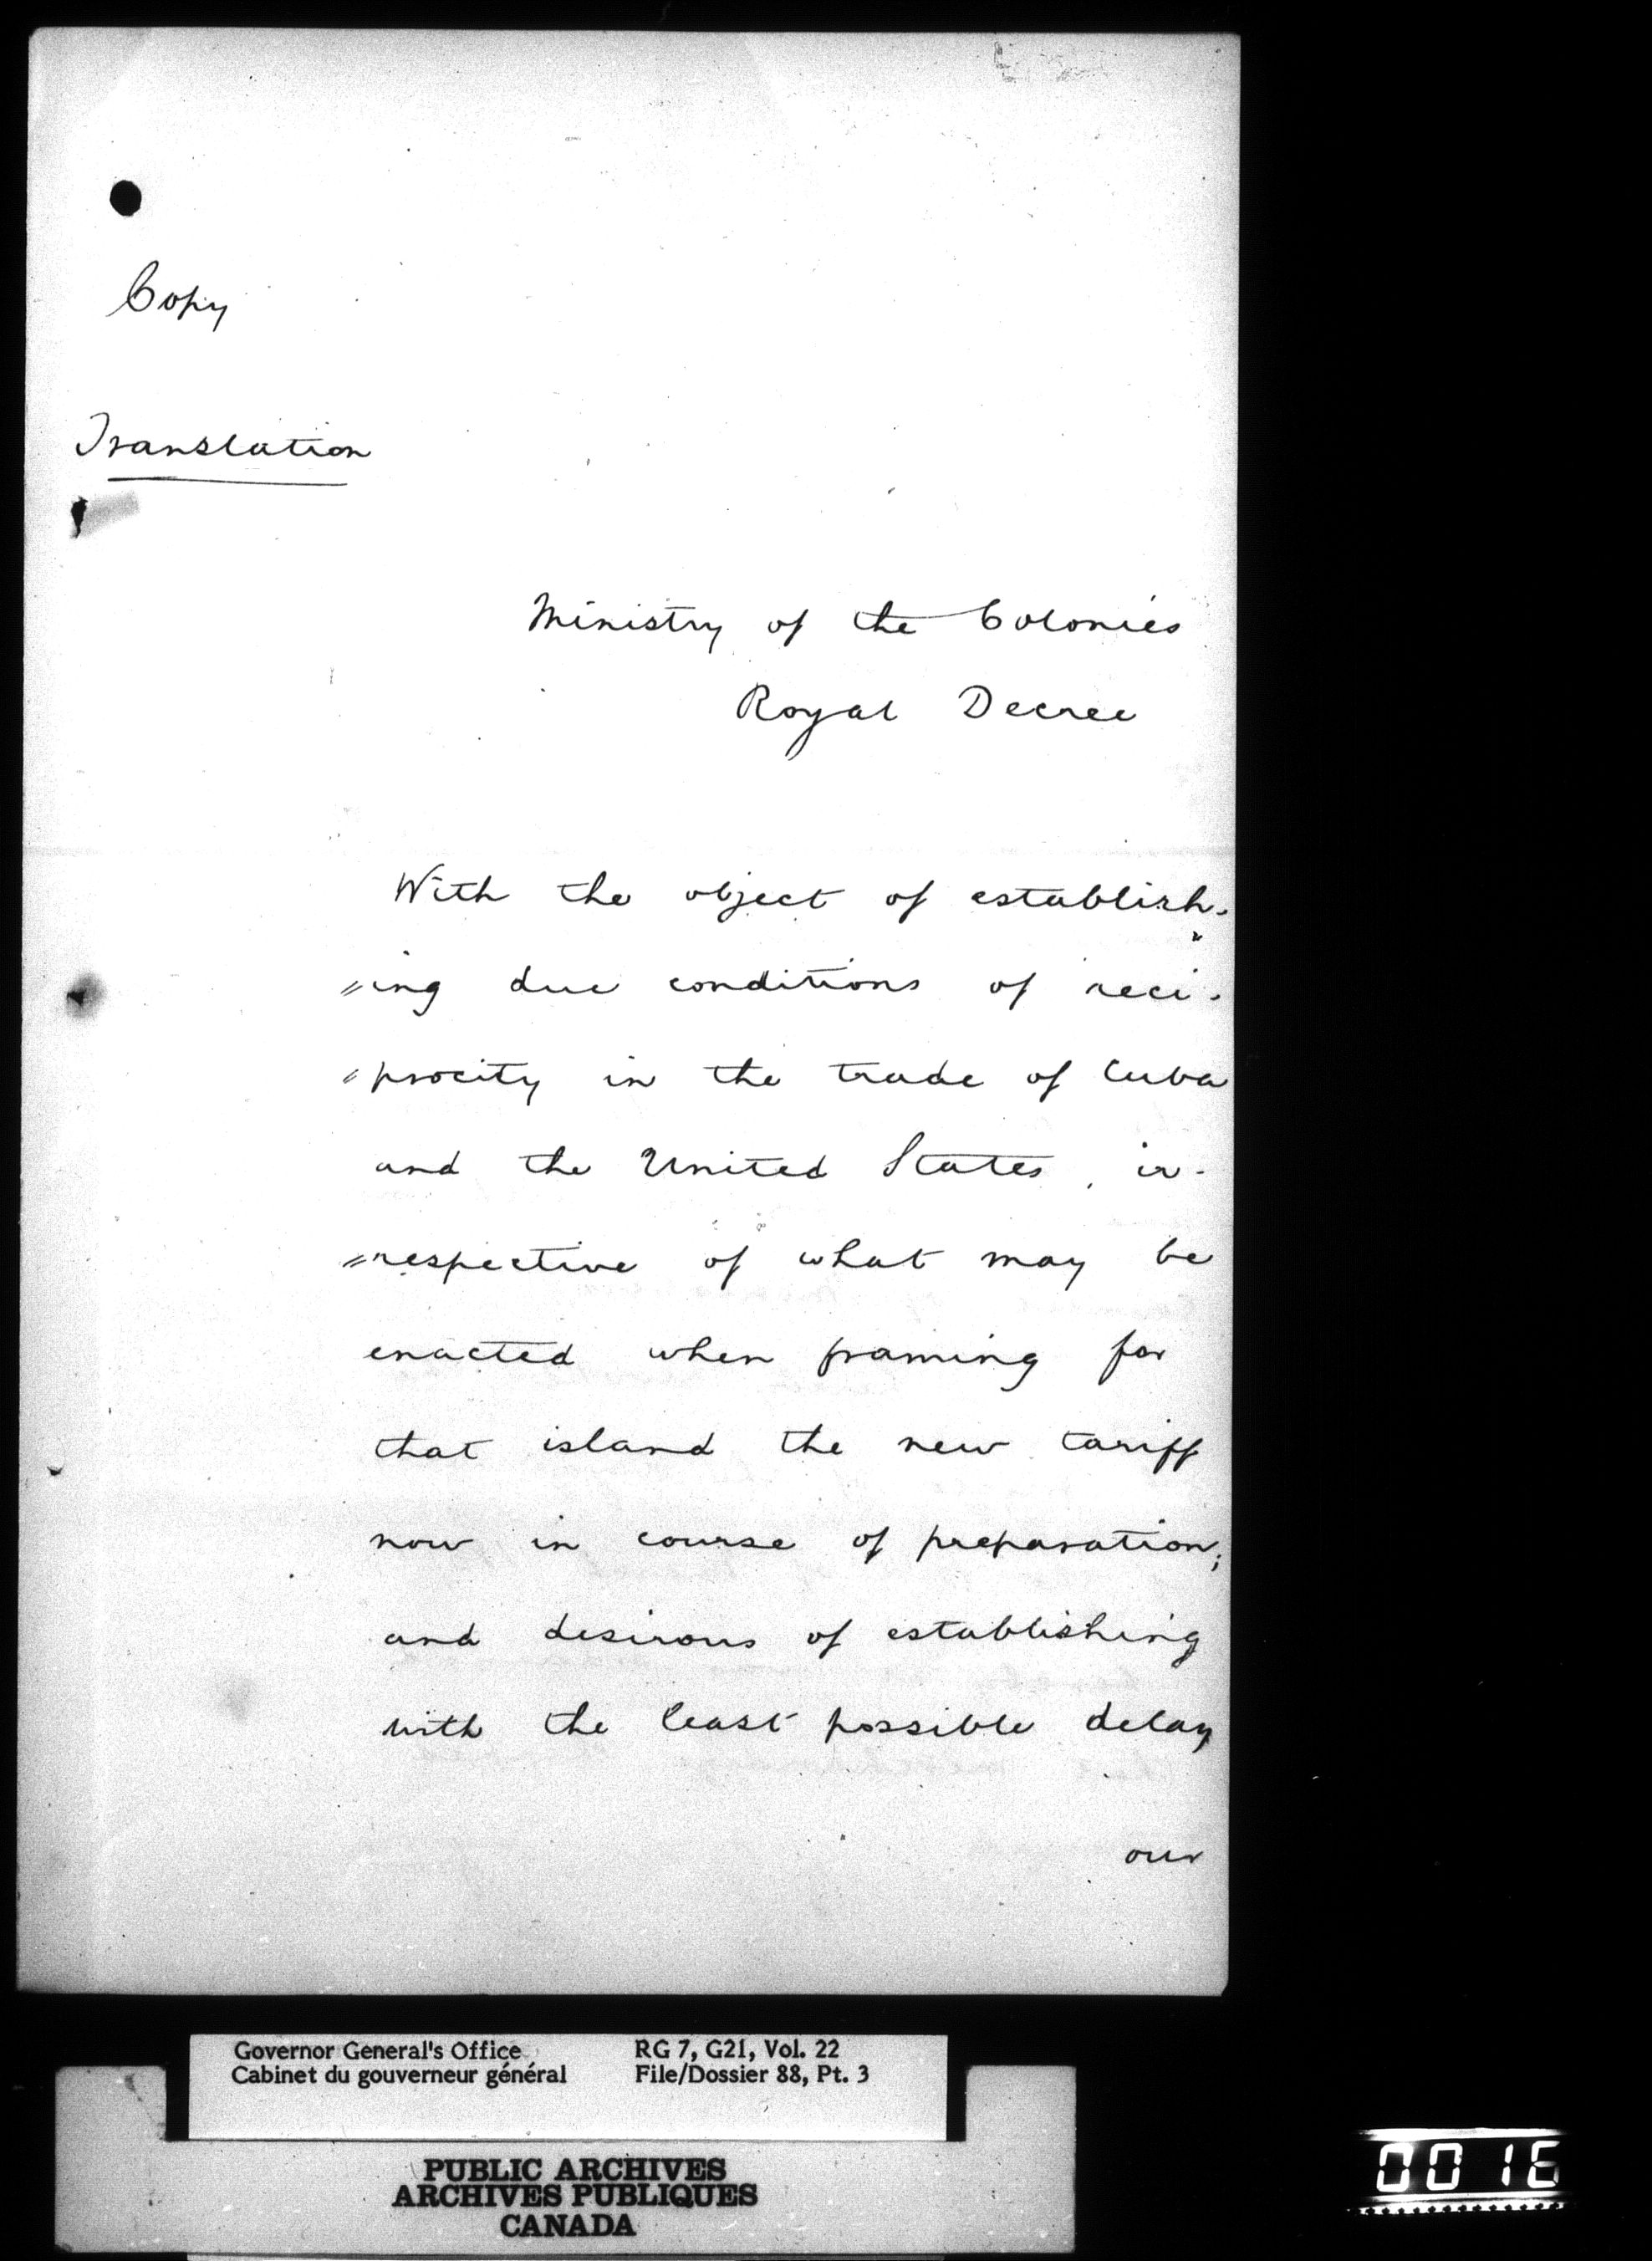 Copy
Translation
Ministry of the Colonies
Royal Decree
With the object of establish-
"ing due conditions of reci-
"procity in the trade of Cuba
and the United States, ir-
"respective of what may be
enacted when framing for
that island the new tariff
now in course of preparation;
and desirous of establishing
with the least possible delay
our
Governor General's Office RG 7, G21, Vol. 22
Cabinet du gouverneur général File/Dossier 88, Pt. 3
PUBLIC ARCHIVES
ARCHIVES PUBLIQUES
CANADA